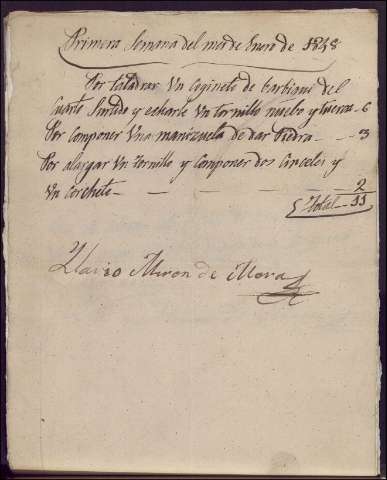 Primera Semana del mes de Enero de 1848
Por taladrar Un Coginete de barbian del
Cuarto Surtido y echarle Un tornillo nuebo y tuerca - 6
Por Componer Una manizuela de dar Piedra - - 3
Por alargar Un Tornillo y Componer dos Carceles y
Un Corchete - - - - 2
Total - 11
Miron de Mora